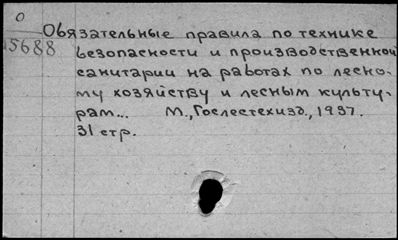 О
5688
Обязательные правила по технике
безопасности и производственной
санитарии на работах по лесно-
му хозяйству и лесным культу-
рам... М., Гослестехизд., 1937.
31 стр.